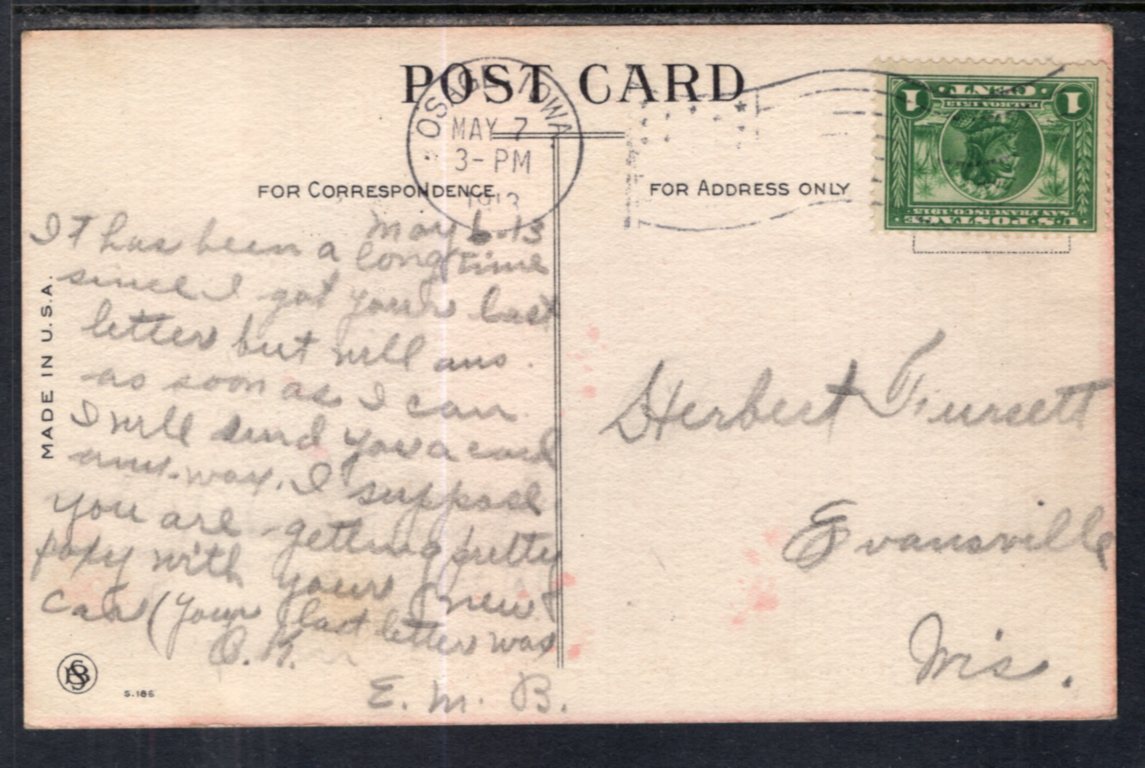 POST CARD
OSAGE IOWA
MAY 7
3-PM
1913
FOR CORRESPONDENCE
FOR ADDRESS ONLY
1 CENT 1
BALBOA 1513
SAN FRANCISCO 1915
U.S. POSTAGE
MADE IN U.S.A.
May 6-13
It has been a long time
since I got your last
letter but will ans.
as soon as I can
I will send you a card
any-way. I suppose
you are getting pretty
foxy with your new
car (Your last letter was
O.K.
E. M. B.
Herbert
Evansville
Wis.
S.186